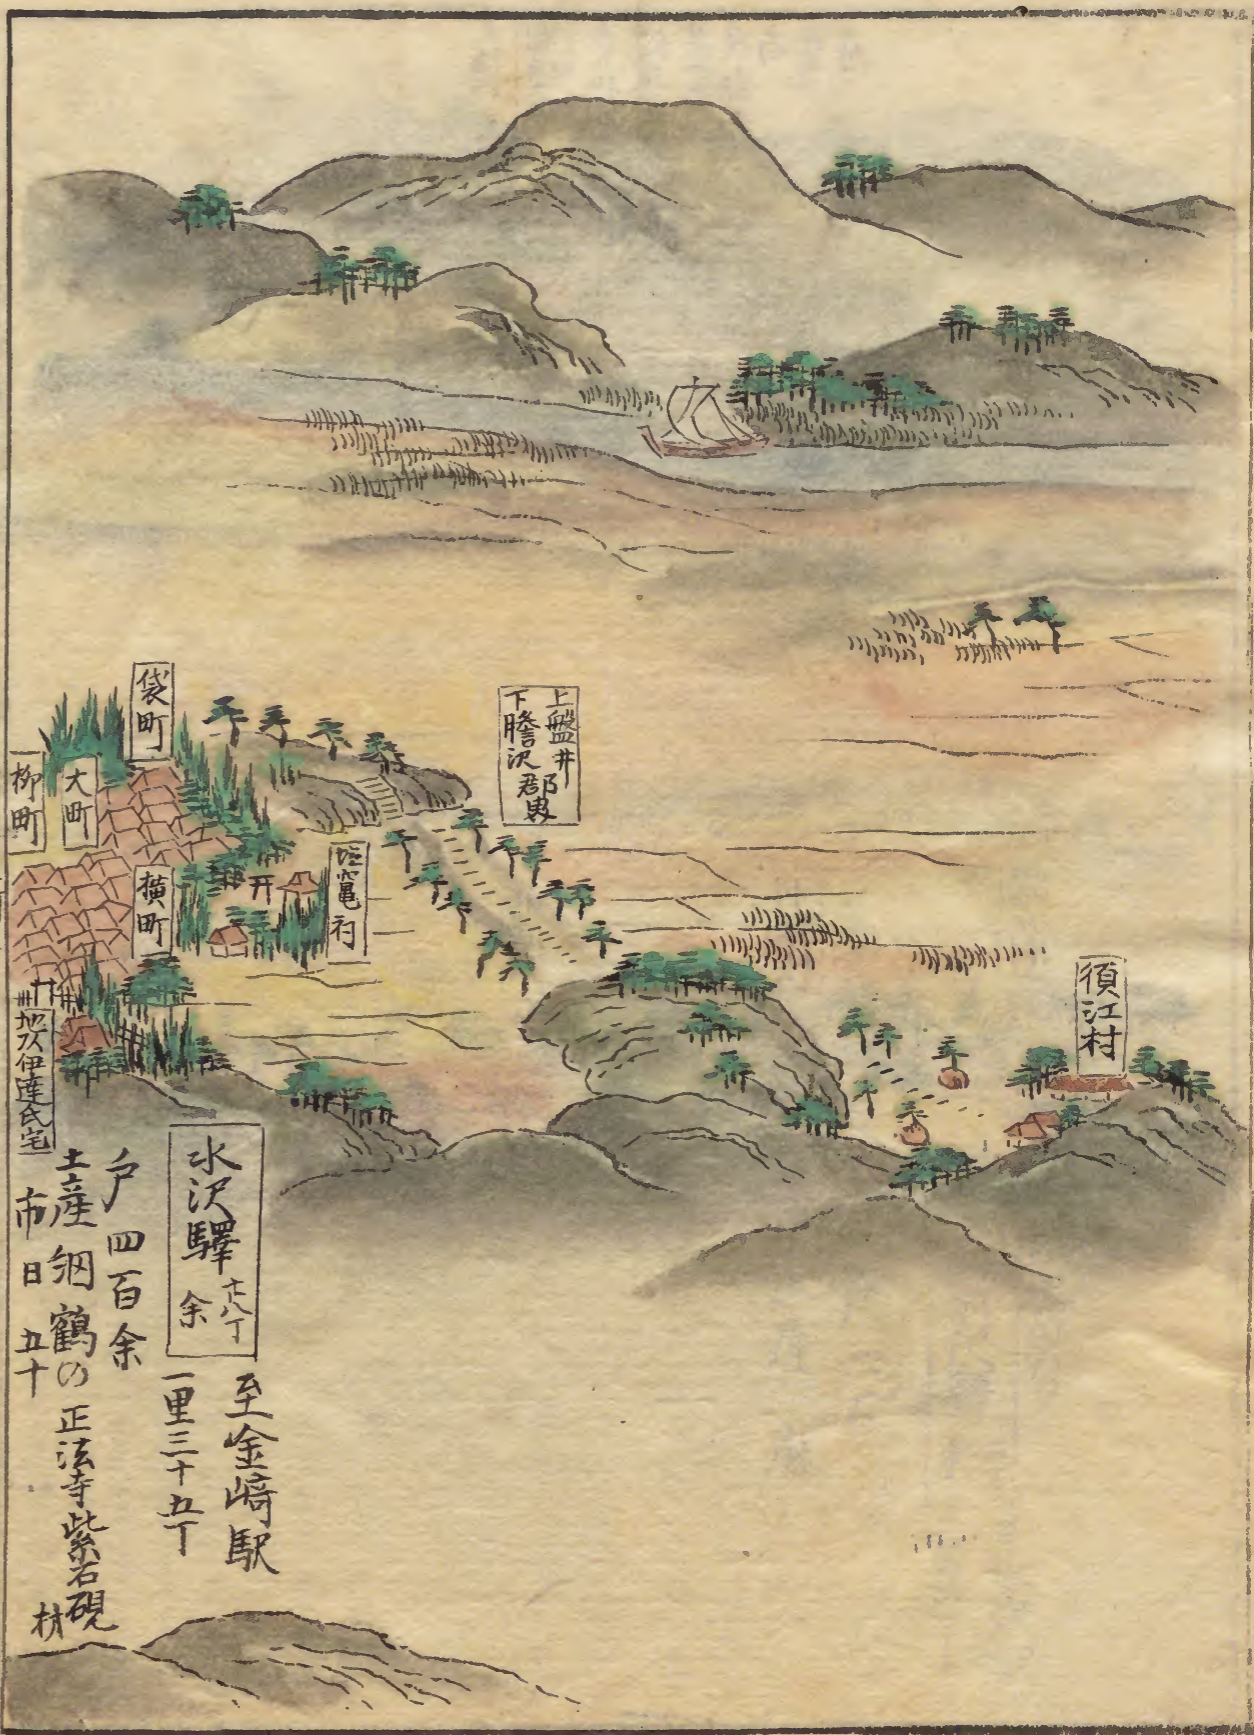 袋町
大町
柳町
横町
塩竈社
上盤井
下膽沢郡界
須江村
地头伊達氏宅
水沢驛
十八丁
余
至金﨑駅
一里三十五丁
戸四百余
土産
鶴の
正法寺紫石硯
材
市日五十